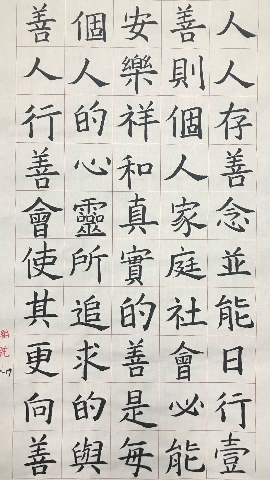 人人存善念並能日行壹
善則個人家庭社會必能
安樂祥和真實的善是每
個人的心靈所追求的與
善人行善會使其更向善